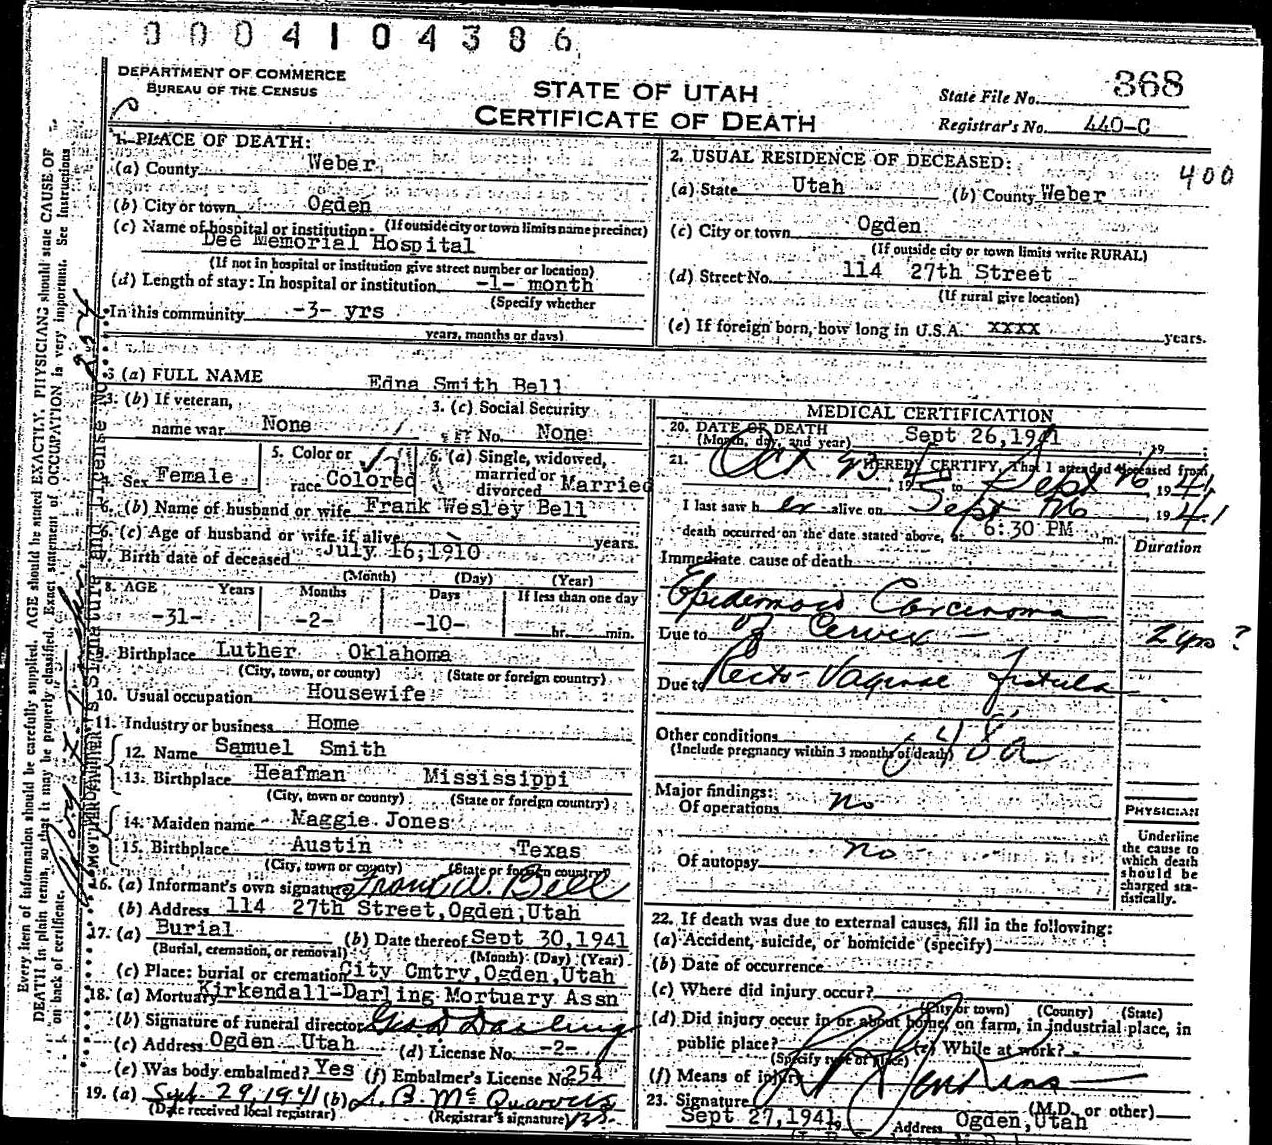 0004104386
DEPARTMENT OF COMMERCE
BUREAU OF THE CENSUS
STATE OF UTAH
CERTIFICATE OF DEATH
State File No. 368
Registrar's No. 440-C
1. PLACE OF DEATH:
(a) County Weber
(b) City or town Ogden
(If outside city or town limits name precinct)
(c) Name of hospital or institution:
Dee Memorial Hospital
(If not in hospital or institution give street number or location)
(d) Length of stay: In hospital or institution -1- month
(Specify whether
In this community -3- yrs
years, months or days)
2. USUAL RESIDENCE OF DECEASED:
400
(a) State Utah (b) County Weber
(c) City or town Ogden
(If outside city or town limits write RURAL)
(d) Street No. 114 27th Street
(If rural give location)
(e) If foreign born, how long in U.S.A. XXXX years.
3 (a) FULL NAME Edna Smith Bell
3. (b) If veteran,
name war None
3. (c) Social Security
No. None
4. Sex Female
5. Color or
race Colored
6. (a) Single, widowed,
married or
divorced Married
6. (b) Name of husband or wife Frank Wesley Bell
6. (c) Age of husband or wife if alive years.
7. Birth date of deceased July 16, 1910
(Month) (Day) (Year)
8. AGE Years Months Days If less than one day
-31- -2- -10- hr. min.
9. Birthplace Luther Oklahoma
(City, town, or county) (State or foreign country)
10. Usual occupation Housewife
11. Industry or business Home
12. Name Samuel Smith
13. Birthplace Heafman Mississippi
(City, town or county) (State or foreign country)
14. Maiden name Maggie Jones
15. Birthplace Austin Texas
(City, town or county) (State or foreign country)
16. (a) Informant's own signature Frank W. Bell
(b) Address 114 27th Street, Ogden, Utah
17. (a) Burial (b) Date thereof Sept 30, 1941
(Burial, cremation, or removal) (Month) (Day) (Year)
(c) Place: burial or cremation City Cmtry, Ogden, Utah
18. (a) Mortuary Kirkendall-Darling Mortuary Assn
(b) Signature of funeral director Geo D Darling
(c) Address Ogden Utah (d) License No. -2-
(e) Was body embalmed? Yes (f) Embalmer's License No. 254
19. (a) Sept 29, 1941 (b) L. B. McQuarrie
(Date received local registrar) (Registrar's signature)
MEDICAL CERTIFICATION
20. DATE OF DEATH
(Month, day, and year) Sept 26, 1941, 19
21. I HEREBY CERTIFY, That I attended deceased from
Oct 23, 19 to Sept 26, 1941
I last saw her alive on Sept 26, 1941
death occurred on the date stated above, at 6:30 PM m.
Duration
Immediate cause of death
Epidermoid Carcinoma
of Cervix 2 yrs ?
Due to
Due to Recto-Vaginal Fistula
Other conditions 48a
(Include pregnancy within 3 months of death)
Major findings:
Of operations no
Of autopsy no
PHYSICIAN
Underline
the cause to
which death
should be
charged sta-
tistically.
22. If death was due to external causes, fill in the following:
(a) Accident, suicide, or homicide (specify)
(b) Date of occurrence
(c) Where did injury occur?
(City or town) (County) (State)
(d) Did injury occur in or about home, on farm, in industrial place, in
public place? (e) While at work?
(Specify type of place)
(f) Means of injury
23. Signature Jenkins
(M.D. or other)
Sept 27, 1941 Address Ogden, Utah
Every item of information should be carefully supplied. AGE should be stated EXACTLY. PHYSICIANS should state CAUSE OF
DEATH in plain terms, so that it may be properly classified. Exact statement of OCCUPATION is very important. See Instructions
on back of certificate.